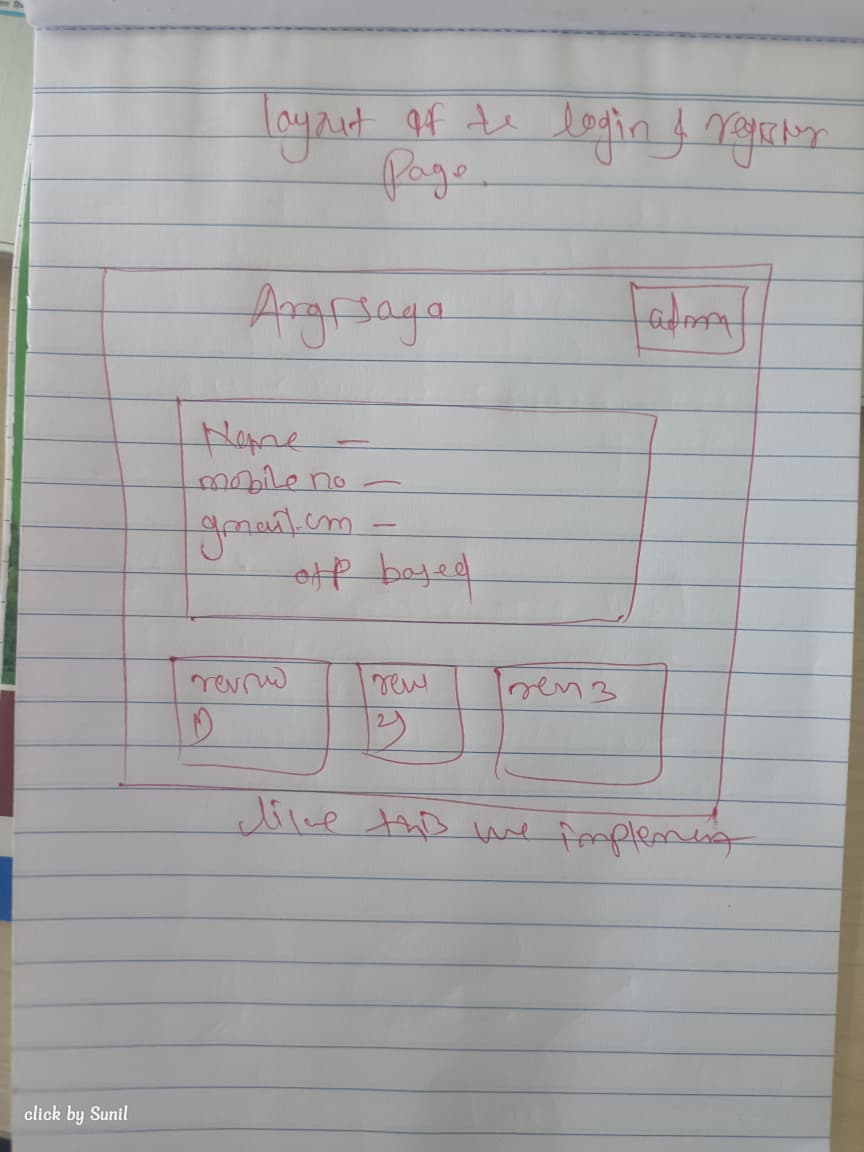 layout of the login & register
Page.
Argrsaga
admin
Name —
mobile no —
gmail.com —
otp based
review
1)
rew
2)
rew 3
like this we implement
click by Sunil